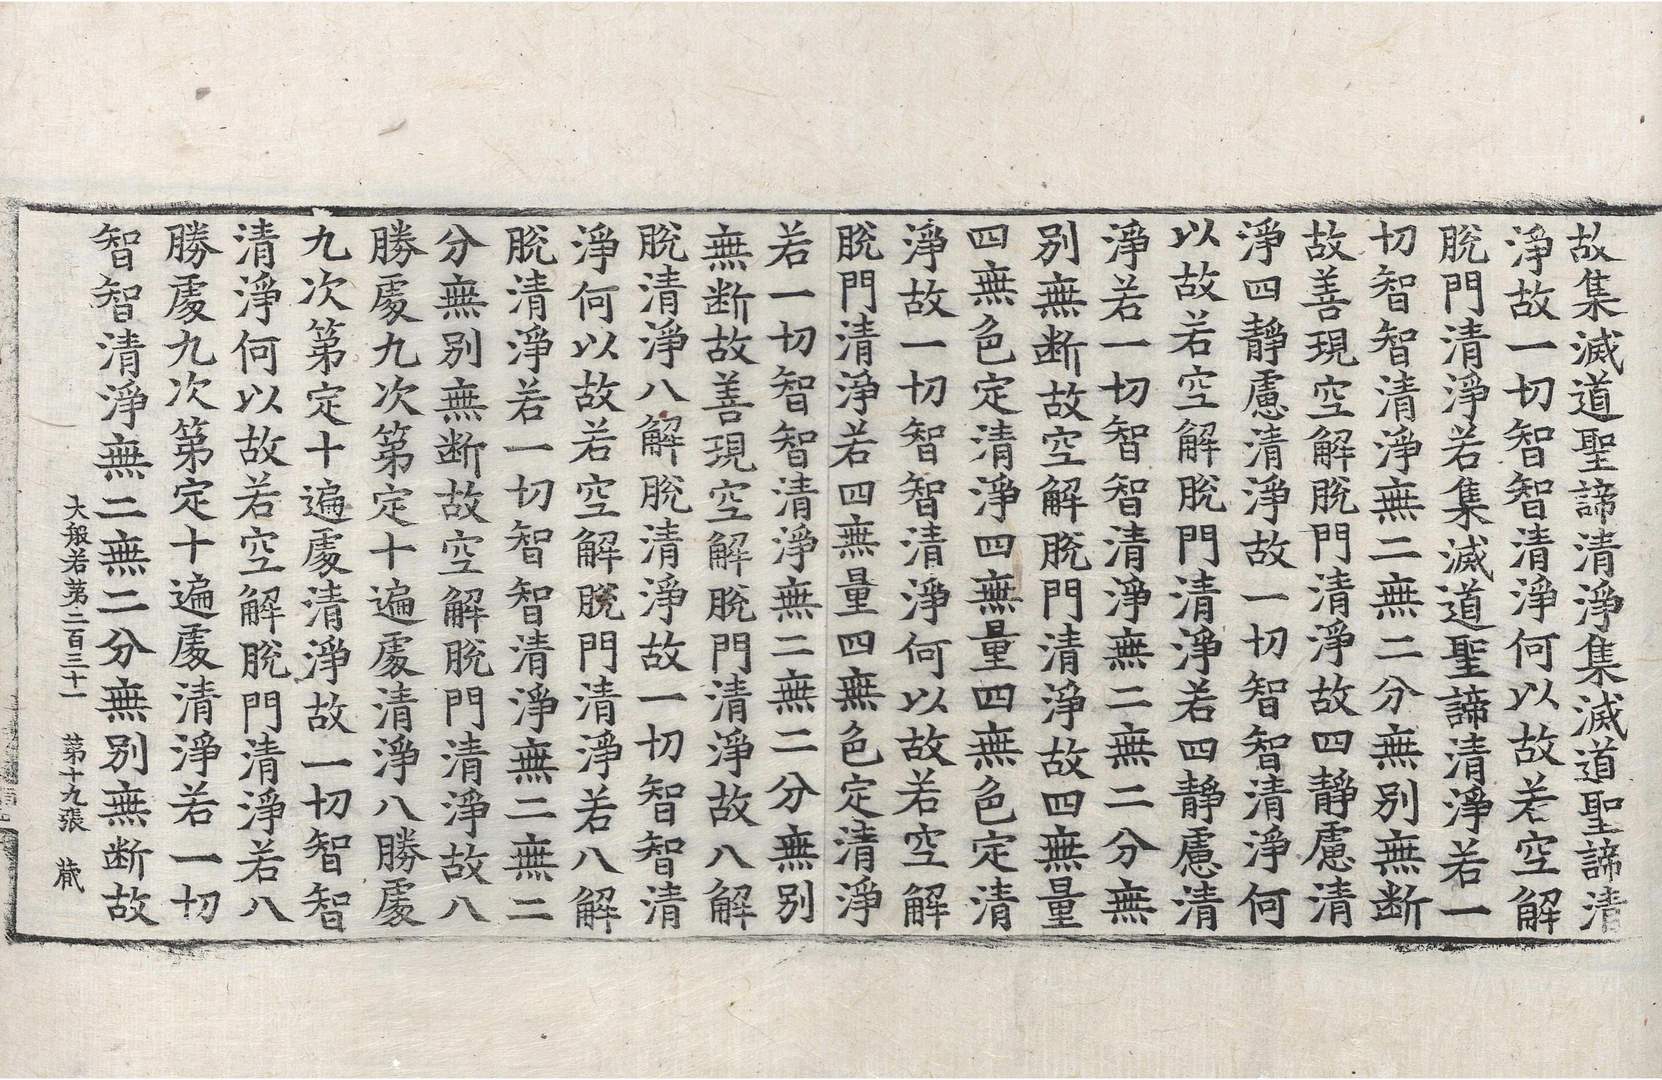 故集滅道聖諦清淨集滅道聖諦清
淨故一切智智清淨何以故若空解
脫門清淨若集滅道聖諦清淨若一
切智智清淨無二無二分無別無斷
故善現空解脫門清淨故四靜慮清
淨四靜慮清淨故一切智智清淨何
以故若空解脫門清淨若四靜慮清
淨若一切智智清淨無二無二分無
別無斷故空解脫門清淨故四無量
四無色定清淨四無量四無色定清
淨故一切智智清淨何以故若空解
脫門清淨若四無量四無色定清淨
若一切智智清淨無二無二分無別
無斷故善現空解脫門清淨故八解
脫清淨八解脫清淨故一切智智清
淨何以故若空解脫門清淨若八解
脫清淨若一切智智清淨無二無二
分無別無斷故空解脫門清淨故八
勝處九次第定十遍處清淨八勝處
九次第定十遍處清淨故一切智智
清淨何以故若空解脫門清淨若八
勝處九次第定十遍處清淨若一切
智智清淨無二無二分無別無斷故
大般若第二百三十一 第十九張 藏